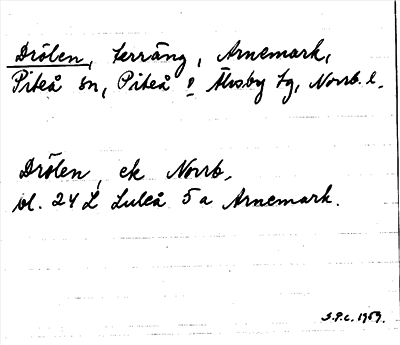 Drölen, terräng, Arnemark,
Piteå sn, Piteå o Älvsby tg, Norrb. l.
Drölen, ek Norrb,
bl. 24 L Luleå 5 a Arnemark.
S.P.C. 1959.